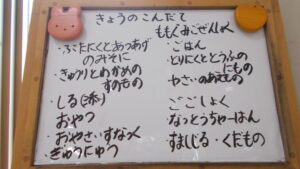 きょうのこんだて
・ぶたにくとあつあげ
のみそに
・きゅうりとわかめの
すのもの
・しる(添)
おやつ
・おやさいすなっく
ぎゅうにゅう
ももぐみごぜんしょく
・ごはん
・とりにくととうふの
にもの
やさいのあえもの
ごごしょく
・なっとうちゃーはん
すましじる・くだもの